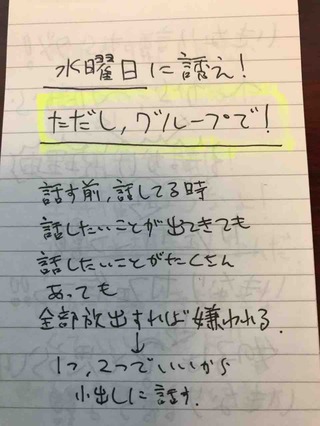 水曜日に誘え!
ただし,グループで!
話す前,話してる時
話したいことが出てきても
話したいことがたくさん
あっても
全部放出すれば嫌われる.
↓
1つ,2つでいいから
小出しに話す.